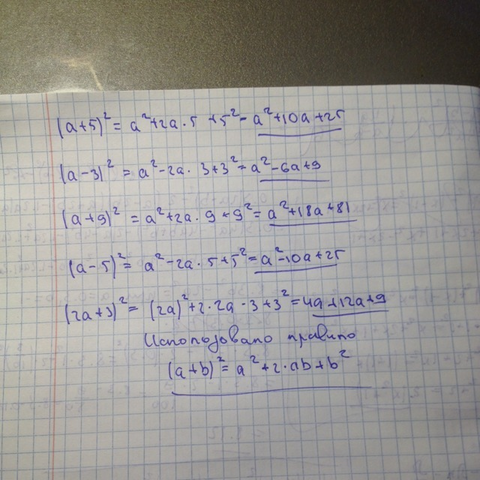 (a+5)² = a²+2a·5+5² = a²+10a+25
(a-3)² = a²-2a·3+3² = a²-6a+9
(a+9)² = a²+2a·9+9² = a²+18a+81
(a-5)² = a²-2a·5+5² = a²-10a+25
(2a+3)² = (2a)²+2·2a·3+3² = 4a+12a+9
Использовано правило
(a+b)² = a²+2·ab+b²